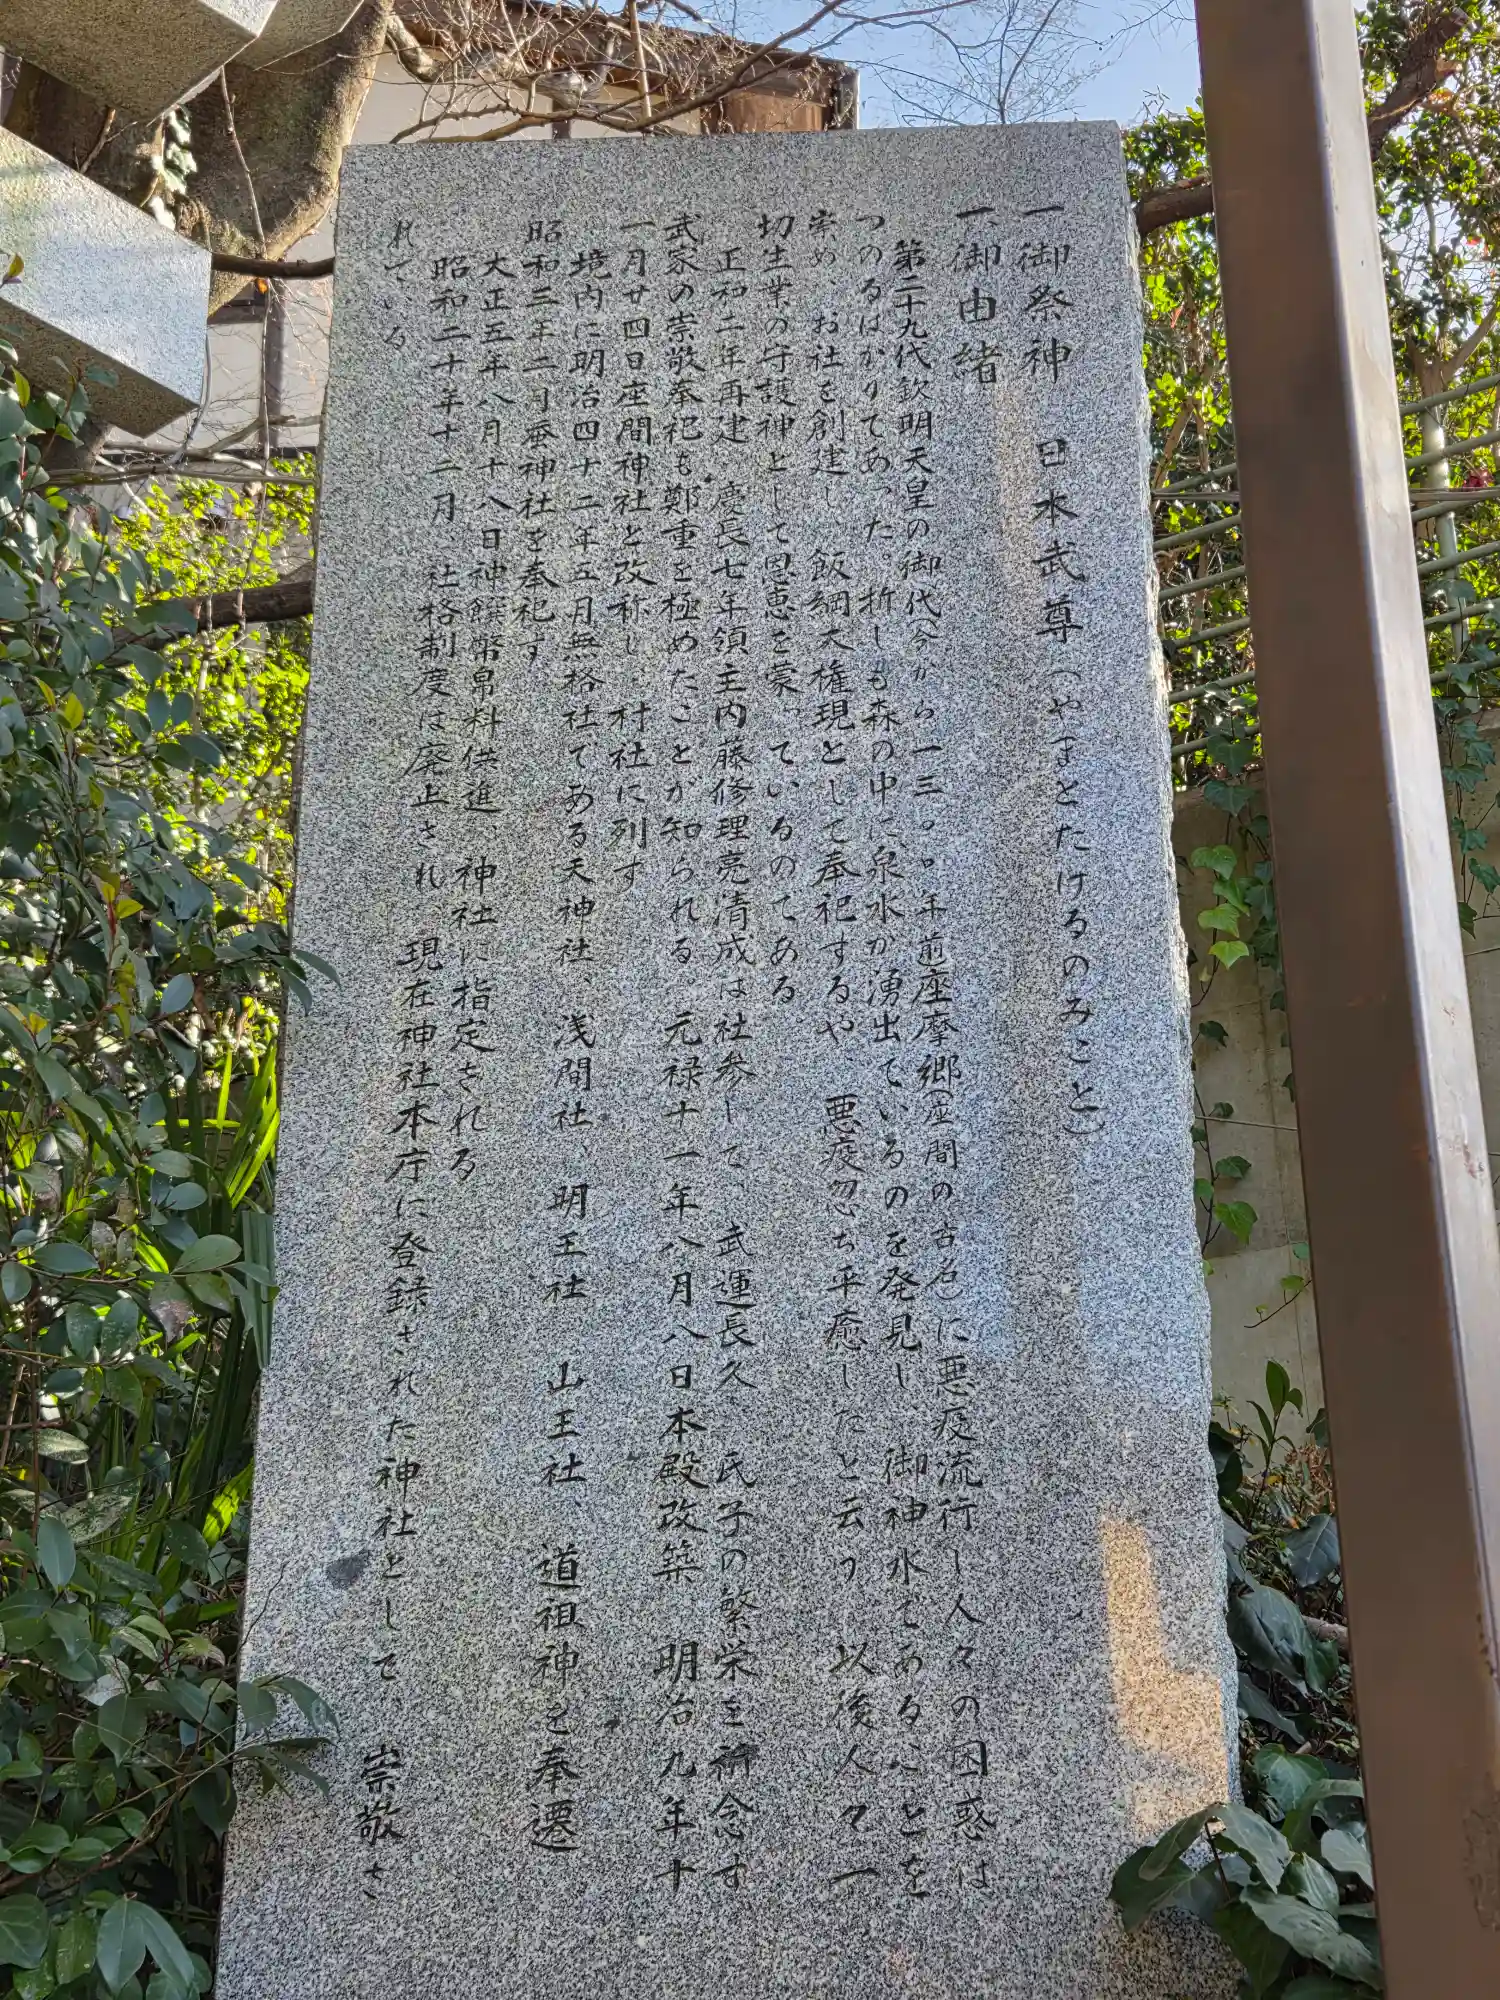 一御祭神　日本武尊（やまとたけるのみこと）
一御由緒
第二十九代欽明天皇の御代（今から一三〇〇年前座摩郷（座間の古名）に悪疫流行し人々の困惑は
つのるばかりであった。折しも森の中に、泉水が湧出ているのを発見し、御神水であることを
崇め、お社を創建し、飯綱大権現として奉祀するや、悪疫忽ち平癒したと云う、以後人々一
切生業の守護神として恩恵を蒙っているのである。
正和二年再建、慶長七年領主内藤修理亮清成は社参して、武運長久、氏子の繁栄を祈念す
武家の崇敬奉祀も鄭重を極めたことが知られる。元禄十一年八月八日本殿改築　明治九年十
一月廿四日座間神社と改称し、村社に列す
境内に明治四十二年五月無格社である天神社、浅間社、明王社、山王社、道祖神を奉遷
昭和三年二月蚕神社を奉祀す
大正五年八月十八日神饌幣帛料供進、神社に指定される
昭和二十年十二月、社格制度は廃止され、現在神社本庁に登録された神社として、崇敬さ
れている